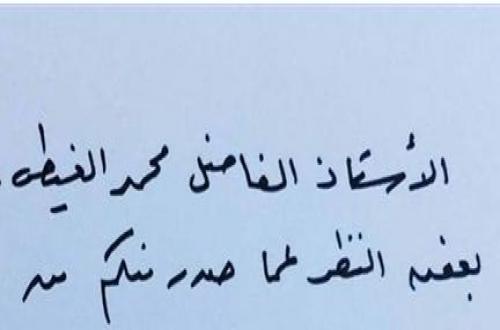 الأستاذ الفاضل محمد الغيطى.
بغض النظر عما صدر منكم من